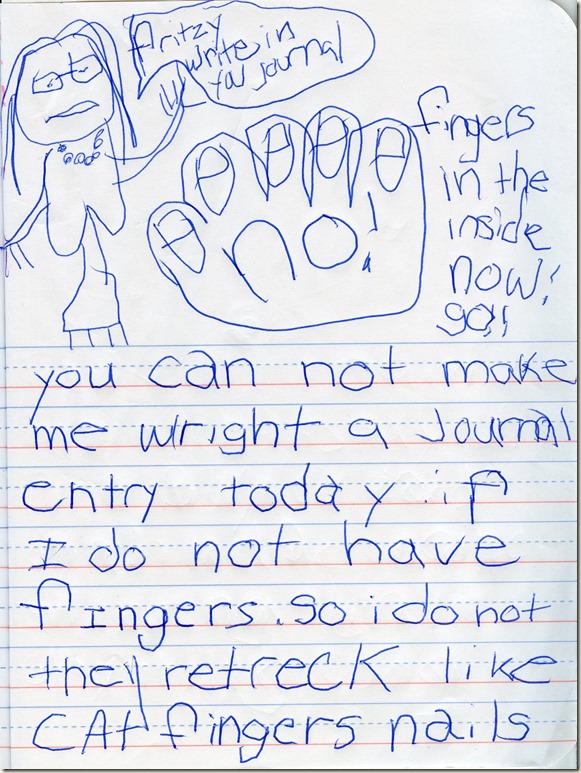 fritzy
write in
you journal
no!
fingers
in the
inside
now!
go!
you can not make
me wright a Journal
entry today .if
I do not have
fingers.so i do not
they retrecK like
CAt fingers nails